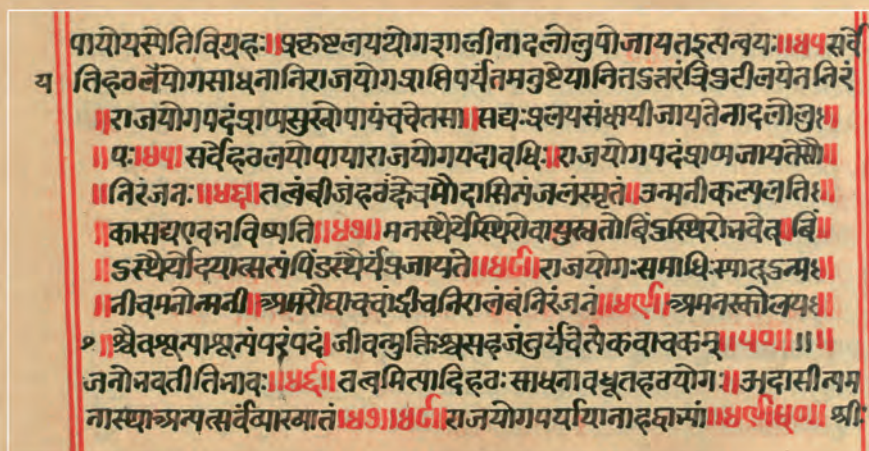 पायोयस्येतिविग्रहः॥प्रकृष्टलययोगशालीनादलोलुपोजायतइत्यन्वयः॥४५सर्वे
य तिहठलैयोगसाधनानिराजयोगप्राप्तिपर्यंतमनुष्टेयानितउत्तरंत्रिपुटीलयेननिरं
॥राजयोगपदंप्राप्यसुखोपायंचचेतसा॥सद्यःप्रलयसंधायीजायतेनादलोलु॥
॥पः॥४५॥सर्वेहठलयोपायाराजयोगपदावधिः॥राजयोगपदंप्राप्यजायतेसौ॥
॥निरंजनः॥४६॥तत्वंबीजंहठंक्षेत्रमौदासिन्यंजलंस्मृतं॥उन्मनीकल्पलति॥
॥कासद्यएवभविष्यति॥४७॥मनस्थैर्येस्थिरोवायुस्ततोबिंदुस्थिरोभवेत्॥बिं॥
॥दुस्थैर्योदयात्सत्यंपिंडस्थैर्यंप्रजायते॥४८॥राजयोगःसमाधिःस्यादुन्म॥
॥नीचमनोन्मनी॥अमरौघा निरालंबंनिरंजनं॥४९॥अमनस्कोलय॥
॥श्चैवशून्याशून्यंपरंपदं॥जीवन्मुक्तिश्चसहजंतुर्यंचैत्येकवाचकम्॥५०॥॥॥
जनोभवतीतिभावः॥४६॥तत्वमित्यादिहठः साधनावधूतहठयोगः॥उदासीन्यम
नास्थाअन्यत्सर्वंव्याख्यातं॥४७॥४८॥राजयोगपर्यायानाहद्वाभ्यां॥४९॥५०॥ श्रीः